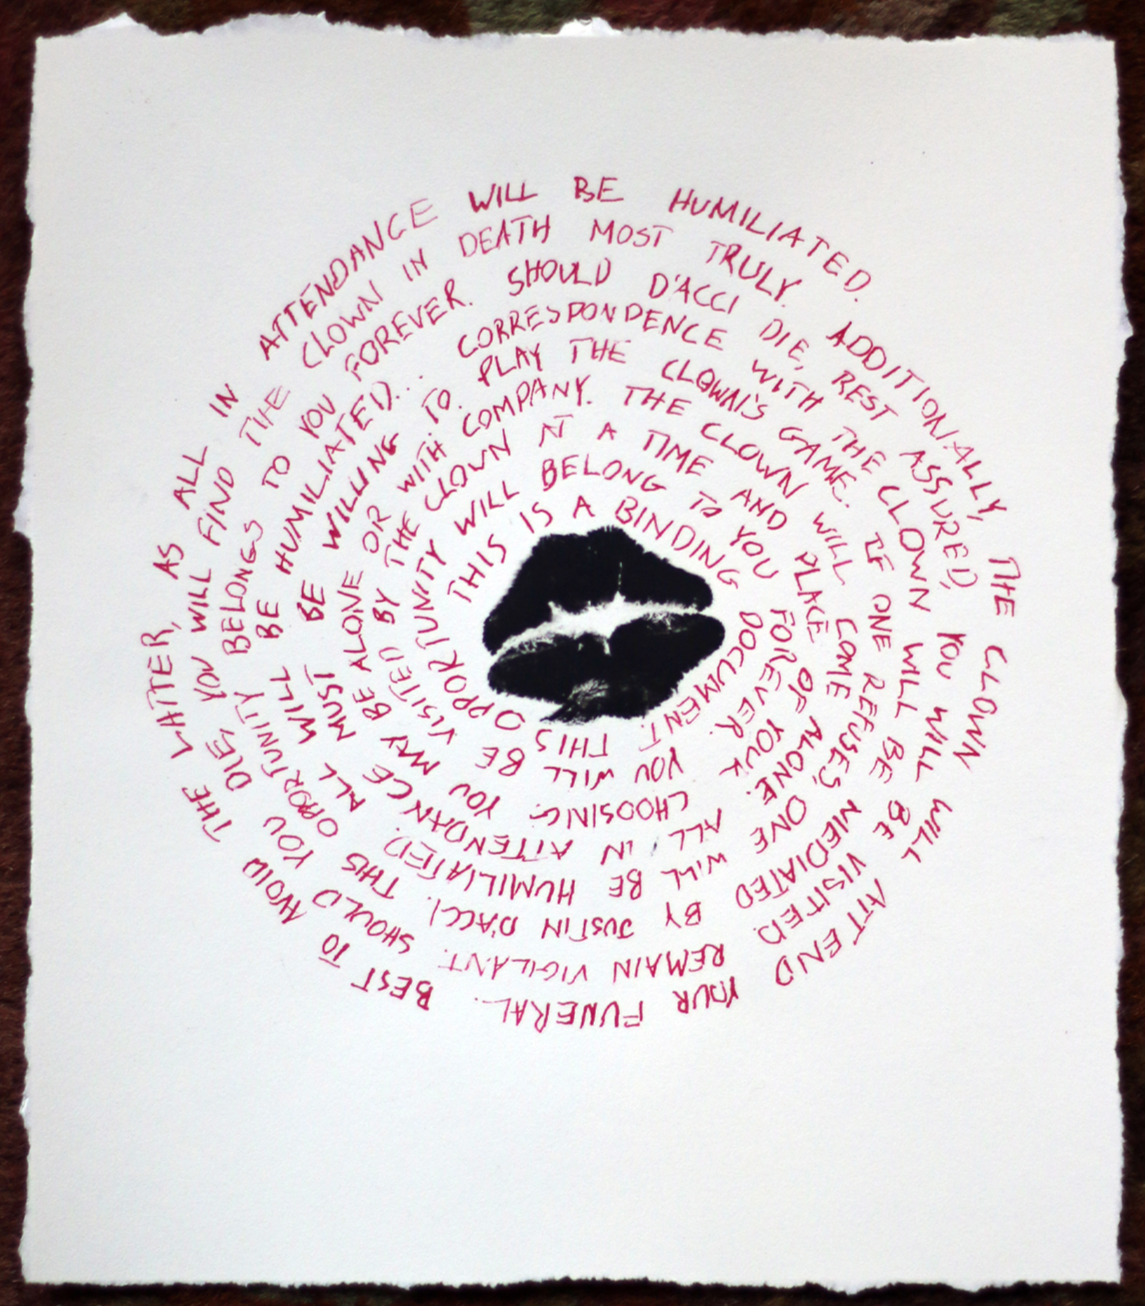 THIS IS A BINDING DOCUMENT. THIS OPPORTUNITY WILL BELONG TO YOU FOREVER. YOU WILL BE VISITED BY THE CLOWN AT A TIME AND PLACE OF YOUR CHOOSING. YOU MAY BE ALONE OR WITH COMPANY. THE CLOWN WILL COME ALONE. ALL IN ATTENDANCE MUST BE WILLING TO PLAY THE CLOWN'S GAME. IF ONE REFUSES, ONE WILL BE HUMILIATED. ALL WILL BE HUMILIATED... CORRESPONDENCE WITH THE CLOWN WILL BE MEDIATED BY JUSTIN D'ACCI. THIS OPORTUNITY BELONGS TO YOU FOREVER. SHOULD D'ACCI DIE, REST ASSURED, YOU WILL BE VISITED. REMAIN VIGILANT. SHOULD YOU DIE, YOU WILL FIND THE CLOWN IN DEATH MOST TRULY. ADDITIONALLY, THE CLOWN WILL ATTEND YOUR FUNERAL. BEST TO AVOID THE LATTER, AS ALL IN ATTENDANCE WILL BE HUMILIATED.